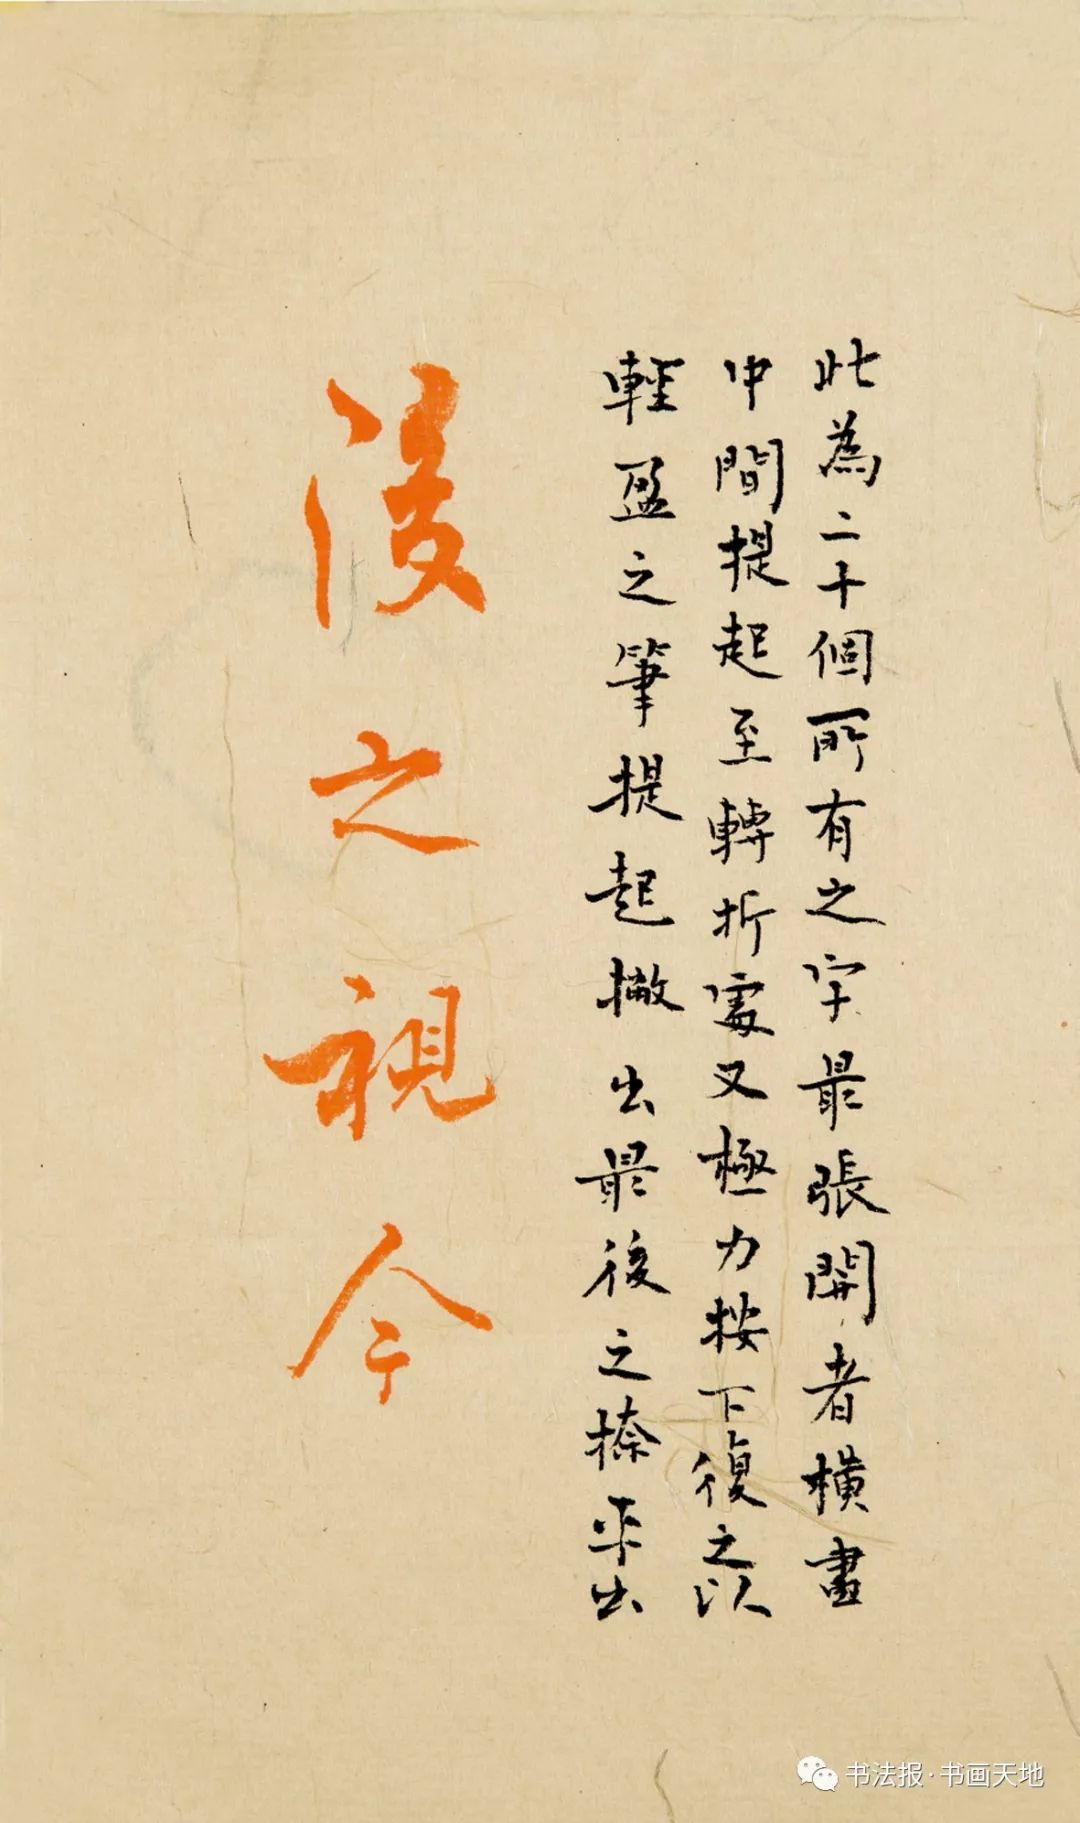 此為二十個所有之字最張開者橫畫
中間提起至轉折處又極力按下復之以
輕盈之筆提起撇出最後之捺平出
後之視今
书法报·书画天地